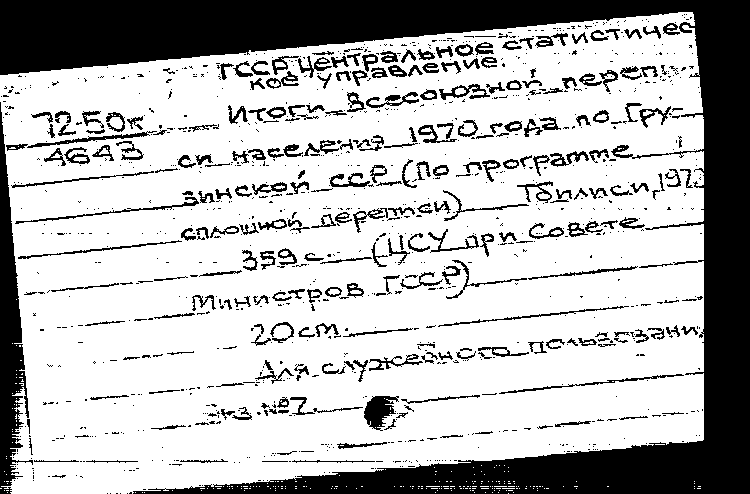 ГССР Центральное статистичес
кое управление.
72-50к
4643
Итоги Всесоюзной переп
си населения 1970 года по Гру-
зинской ССР (По программе
сплошной переписи) Тбилиси,
359 с. (ЦСУ при Совете
Министров ГССР)
20 см.
Для служебного пользовани
Экз. №7.